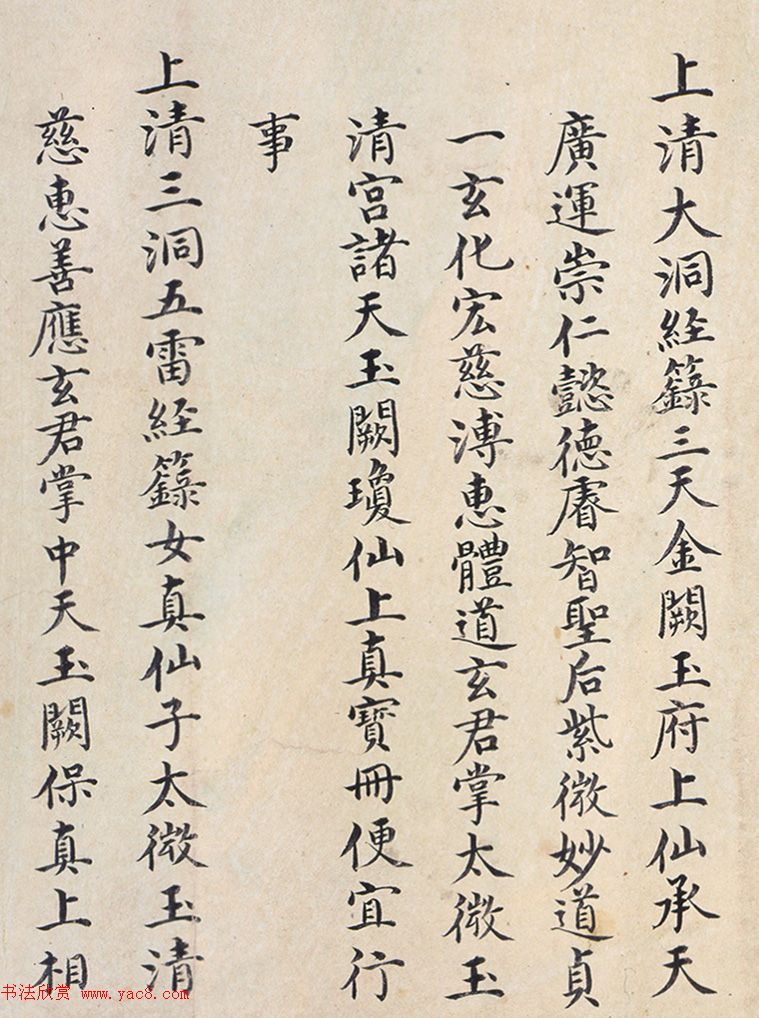 上清大洞経籙三天金闕玉府上仙承天
廣運崇仁懿德睿智聖后紫微妙道貞
一玄化宏慈溥惠體道玄君掌太微玉
清宮諸天玉闕瓊仙上真寶冊便宜行
事
上清三洞五雷経籙女真仙子太微玉清
慈惠善應玄君掌中天玉闕保真上相
书法欣赏 www.yac8.com